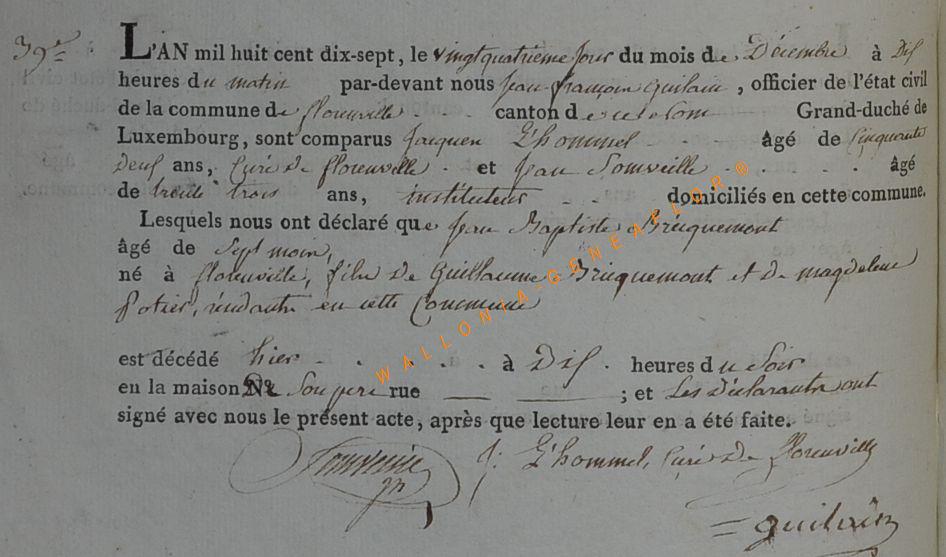 39e
L'AN mil huit cent dix-sept, le vingtquatrieme jour du mois de Décembre à Dix
heures du matin par-devant nous Jean françois Guilain, officier de l'état civil
de la commune de florenville canton de Grand-duché de
Luxembourg, sont comparus Jacques L'hommel âgé de Cinquante
deux ans, Curé de florenville et Jean Tomveille âgé
de trente trois ans, instituteur domiciliés en cette commune.
Lesquels nous ont déclaré que Jean Baptiste Bricquemont
âgé de Sept mois,
né à florenville, fils de Guillaume Bricquemont et de magdelene
Potier, résidants en cette Commune
est décédé hier à Dix heures du Soir
en la maison De Son pere rue ; et Les déclarants ont
signé avec nous le présent acte, après que lecture leur en a été faite.
J: L'hommel, Curé de florenville
guilain
WALLONIA-GENEAFLOR®